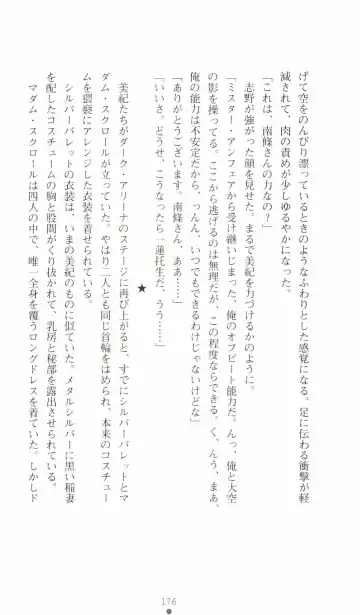 げて空をのんびり漂っているときのようなふわりとした感覚になる。足に伝わる衝撃が軽
減されて、肉の責めが少しゆるやかになった。
「これは、南條さんの力なの？」
志野が強がった顔を見せた。まるで美紀を力づけるかのように。
「ミスター・アンフェアから受け継いじまった、俺のオフビート能力だ。んっ、俺と大空
の影を操ってる。ここから逃げるのは無理だが、この程度ならできる。く、んう、まあ、
俺の能力は不安定だから、っんん、いつでもできるわけじゃないけどな」
「ありがとうございます。南條さん、ああ……」
「いいさ。どうせ、こうなったら一蓮托生だ、うう……」
★
美紀たちがダーク・アリーナのステージに再び上がると、すでにシルバーバレットとマ
ダム・スクロールが立っていた。やはり二人とも同じ首輪をはめられ、本来のコスチュー
ムを猥褻にアレンジした衣装を着せられている。
シルバーバレットの衣装は、いまの美紀のものに似ていた。メタルシルバーに黒い稲妻
を配したコスチュームの胸と股間がくり抜かれて、乳房と秘部を露出させられている。
マダム・スクロールは四人の中で、唯一全身を覆うロングドレスを着ていた。しかしド
176